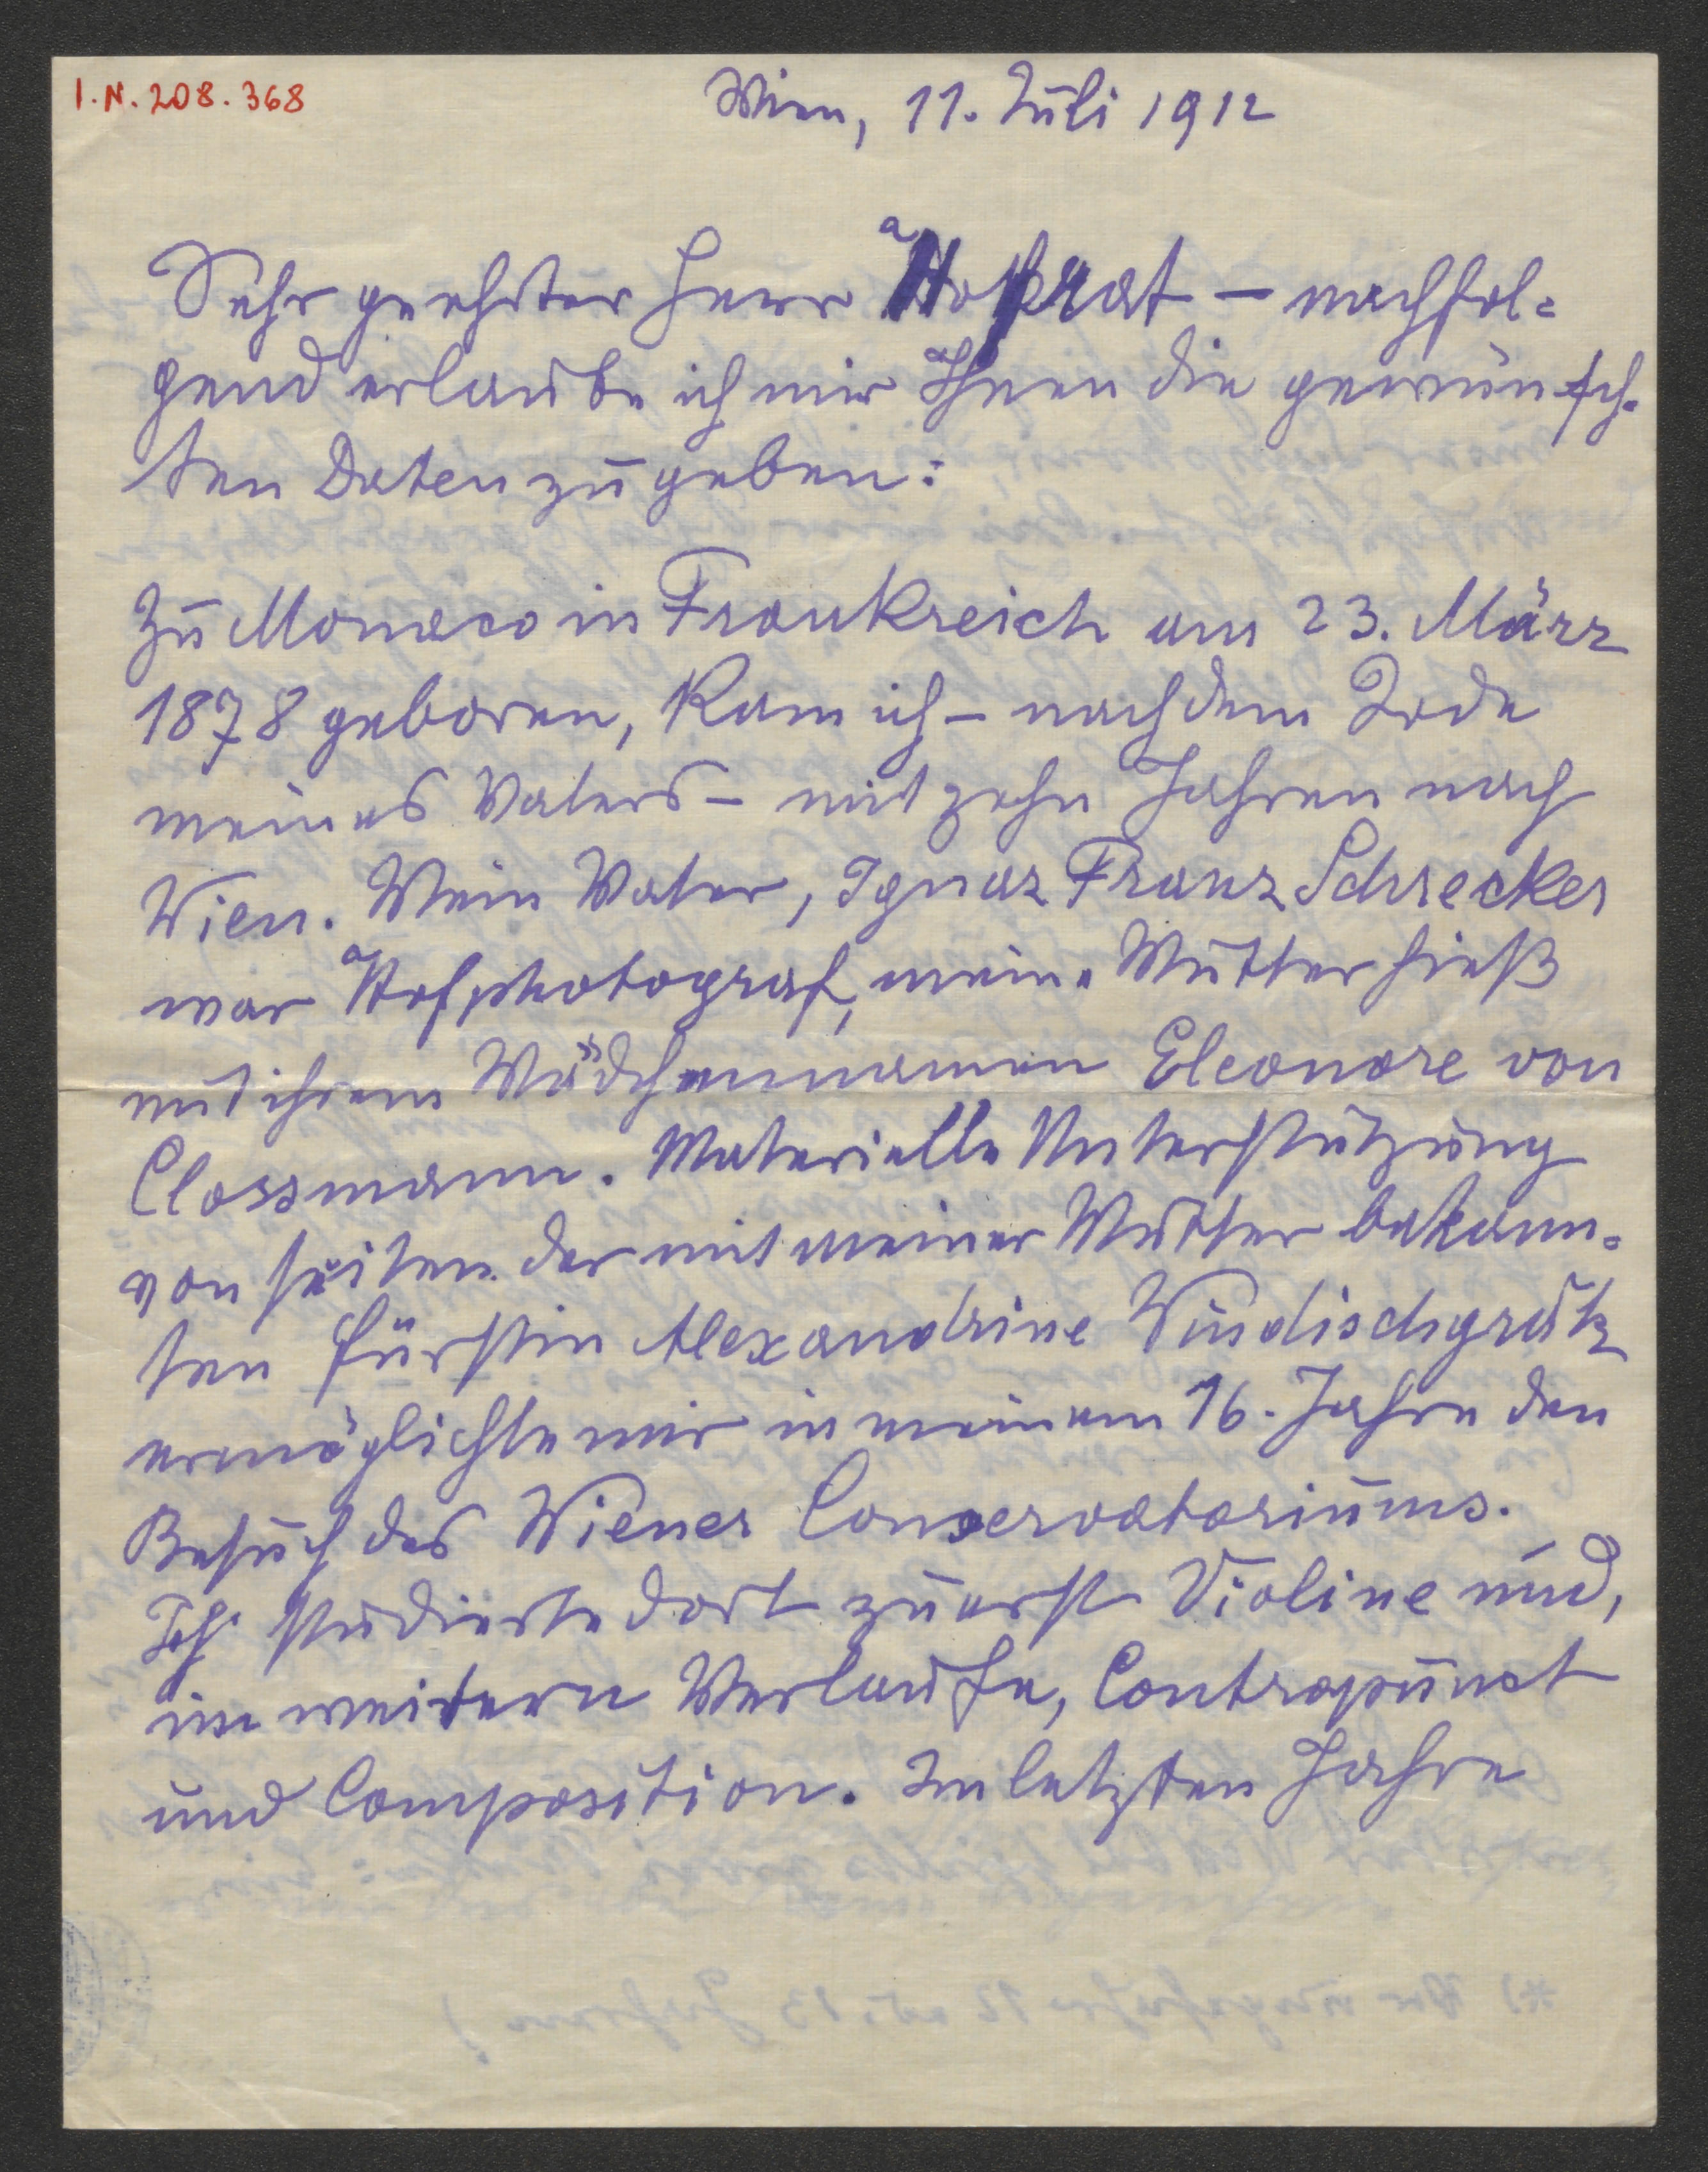 I.N. 208.368
Wien, 11. Juli 1912
Sehr geehrter Herr Hofrat – nachfol=
gend erlaube ich mir Ihnen die gewünsch=
ten Daten zu geben:
Zu Monaco in Frankreich am 23. März
1878 geboren, kam ich – nach dem Tode
meines Vaters – mit zehn Jahren nach
Wien. Mein Vater, Ignaz Franz Schrecker
war Hofphotograf, meine Mutter hieß
mit ihrem Mädchennamen Eleonore von
Clossmann. Materielle Unterstützung
von seiten der mit meiner Mutter bekann=
ten Fürstin Alexandrine Windischgrätz
ermöglichte mir in meinem 16. Jahre den
Besuch des Wiener Conservatoriums.
Ich studierte dort zuerst Violine und,
im weitern Verlaufe, Contrapunct
und Composition. Im letzten Jahre